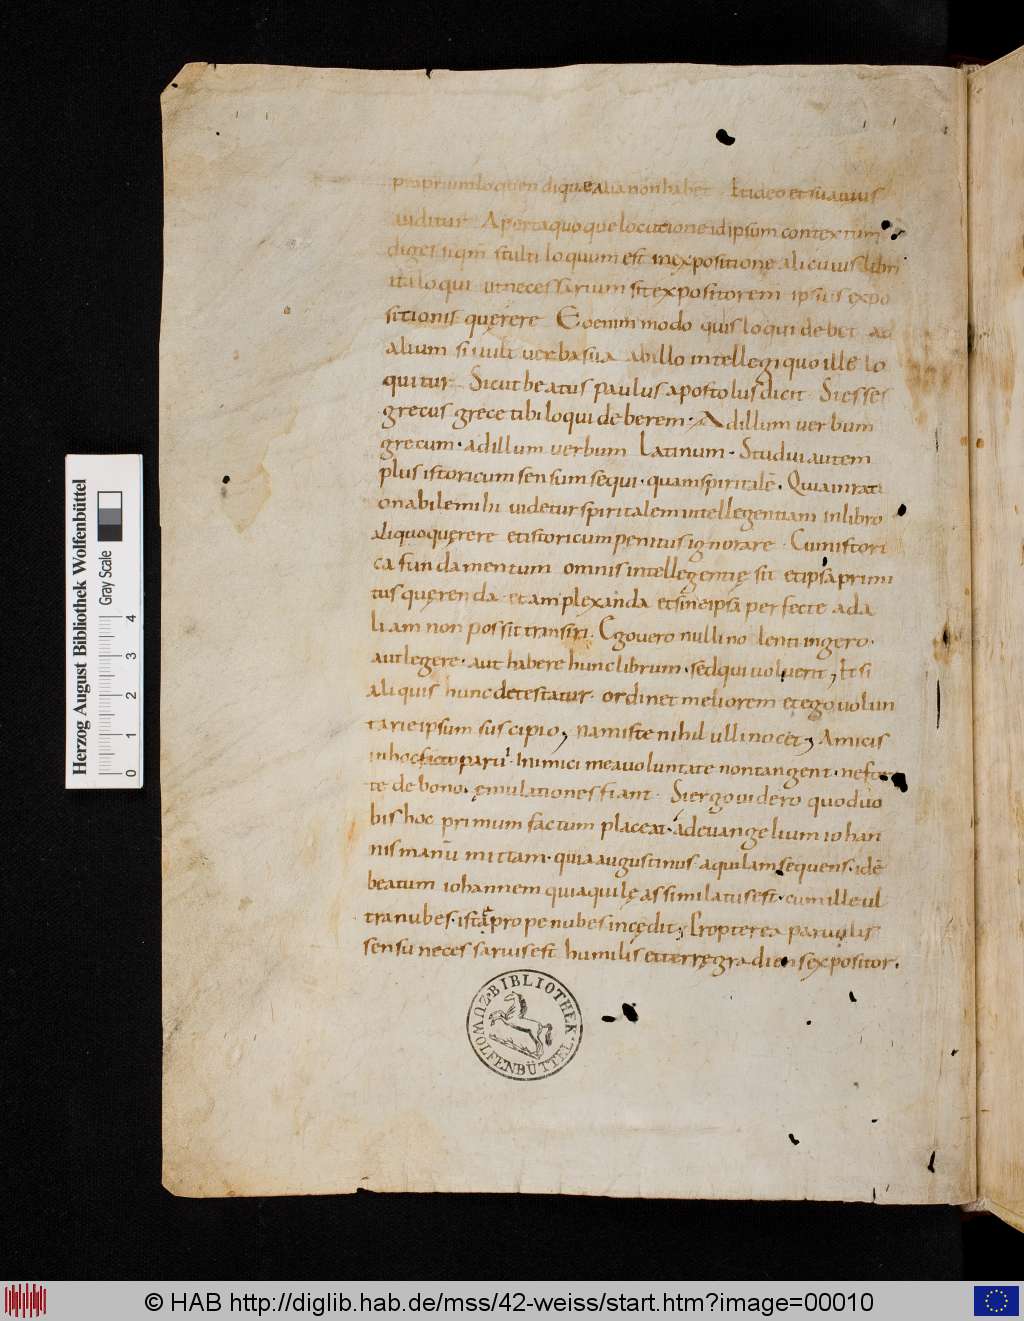 propriumloquendi quę alia non habet Et ideo et suauius
uiditur Aperta quoque locutione idipsum contextum
digessi qm̄ stultiloquum est inexpositione alicuius libri
ita loqui ut necessarium sit expositorem ipsius expo
sitionis quęrere Eo enim modo quis loqui debet ad
alium si uult uerba sua ab illo intellegi quo ille lo
quitur Sicut beatus paulus apostolus dicit Si esses
grecus grece tibi loqui deberem· Ad illum uerbum
grecum· ad illum uerbum Latinum· Studui autem
plus istoricum sensum sequi· quam spiritalē. Quia inrati
onabile mihi uidetur spiritalem intellegentiam in libro
aliquo quęrere et istoricum penitus ignorare· Cum istori
ca fundamentum omnis intellegentię sit et ipsa primi
tus quęrenda et amplexanda et sine ipsa perfecte ad a
liam non possit transiri. Ego uero nulli nolenti ingero·
aut legere· aut habere hunc librum· sed qui uoluerit, Et si
aliquis hunc detestatur· ordinet meliorem et ego uolun
tarie ipsum suscipio, nam iste nihil ulli nocet, Amicis
in hoc parui· Inimici mea uoluntate non tangent· ne for
te de bono. ęmulationes fiant· Si ergo uidero quod uo
bis hoc primum factum placeat· ad euangelium iohan
nis manū mittam· quia augustinus aquilam sequens· idē
beatum iohannem qui aquilę assimilatus est· cum ille ul
tra nubes· ista prope nubes incędit, Propterea paruulis
sensu necessarius est humilis et terrę gradiens expositor.
WOLFENBÜTTEL·
BIBLIOTHEK·
Herzog August Bibliothek Wolfenbüttel
Gray Scale
0 1 2 3 4
© HAB http://diglib.hab.de/mss/42-weiss/start.htm?image=00010